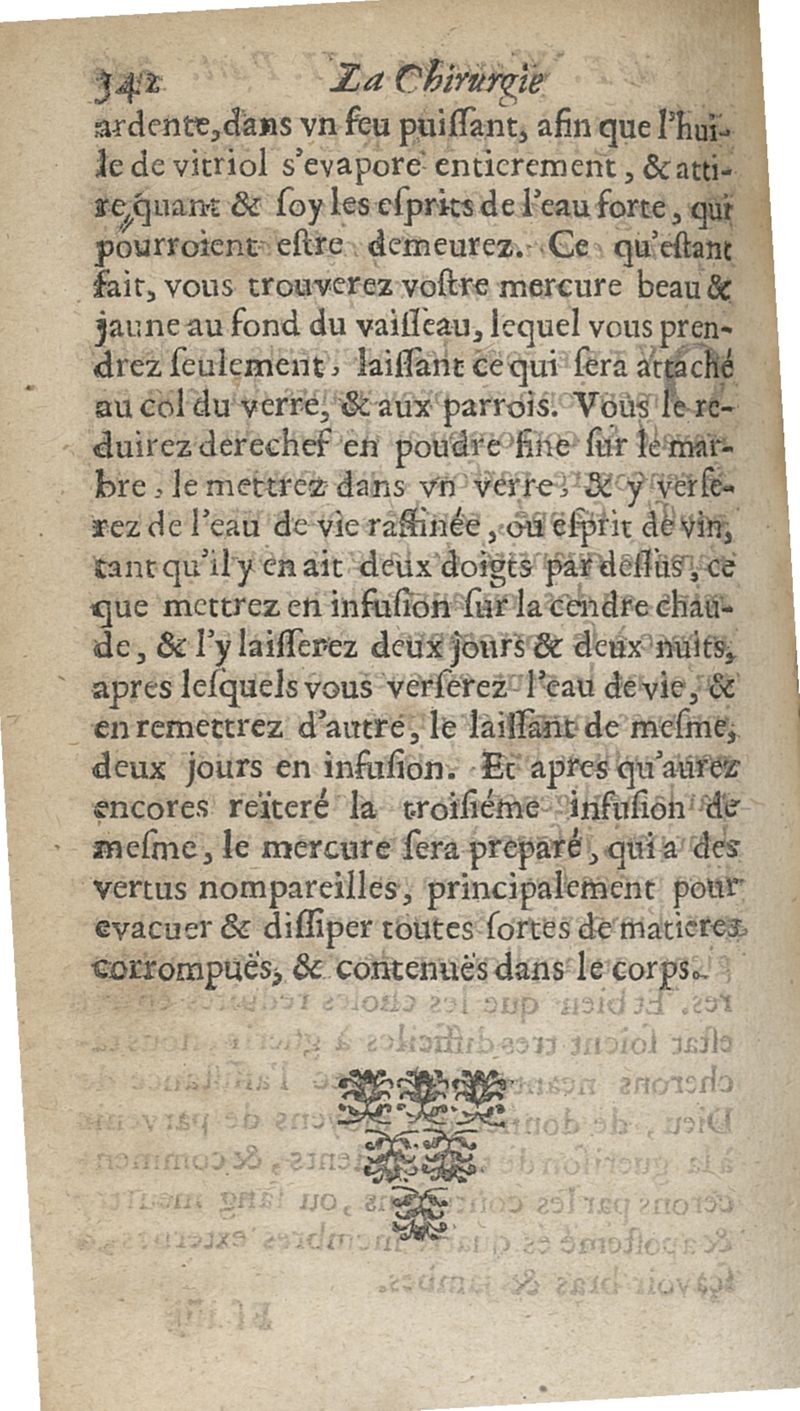 342 La Chirurgie
ardente, dans vn feu puiſſant, afin que l'hui-
le de vitriol s'evapore entierement, & atti-
re quant & ſoy les eſprits de l'eau forte, qui
pourroient eſtre demeurez. Ce qu'eſtant
fait, vous trouverez voſtre mercure beau &
jaune au fond du vaiſſeau, lequel vous pren-
drez ſeulement, laiſſant ce qui ſera attaché
au col du verre, & aux parrois. Vous le re-
duirez derechef en poudre fine ſur le mar-
bre, le mettrez dans vn verre, & y verſe-
rez de l'eau de vie raffinée, ou eſprit de vin,
tant qu'il y en ait deux doigts par deſſus, ce
que mettrez en infuſion ſur la cendre chau-
de, & l'y laiſſerez deux jours & deux nuits,
apres leſquels vous verſerez l'eau de vie, &
en remettrez d'autre, le laiſſant de meſme,
deux jours en infuſion. Et apres qu'aurez
encores reïteré la troiſiéme infuſion de
meſme, le mercure ſera preparé, qui a des
vertus nompareilles, principalement pour
evacuer & diſſiper toutes ſortes de matieres
corrompuës, & contenuës dans le corps.